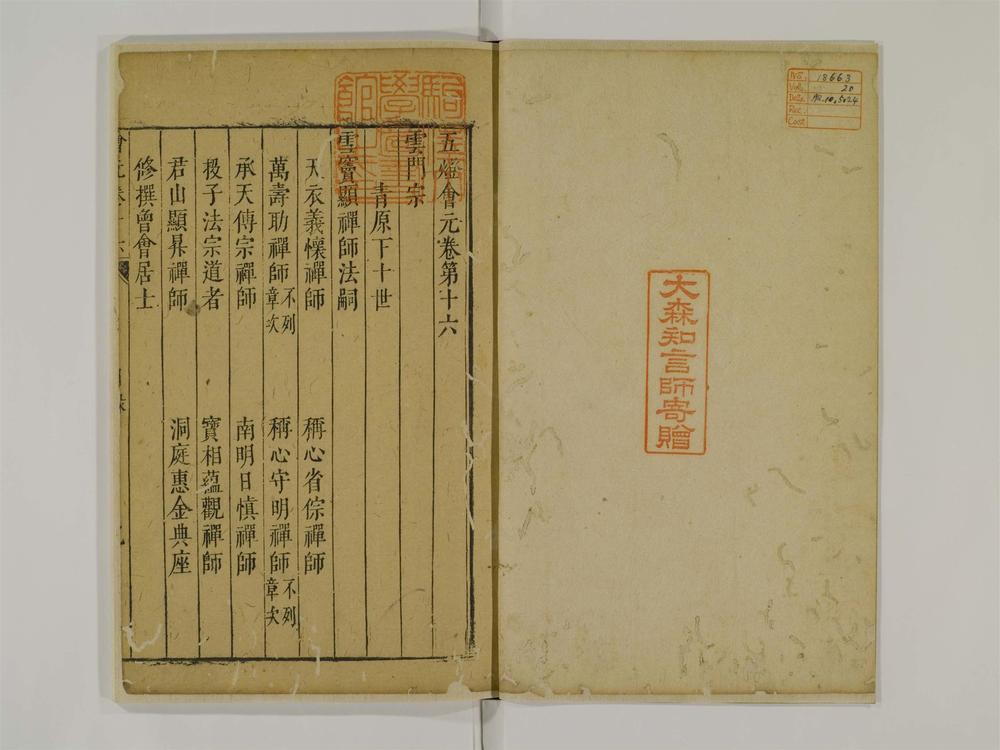 No. 18663
Vol. 20
Date
Rec.
Cost
大森知言師寄贈
五燈會元卷第十六
雲門宗
青原下十世
雪竇顯禪師法嗣
天衣義懷禪師 稱心省倧禪師
萬壽助禪師不列章次 稱心守明禪師不列章次
承天傳宗禪師 南明日慎禪師
投子法宗道者 寶相蘊觀禪師
君山顯昇禪師 洞庭惠金典座
修撰曾會居士